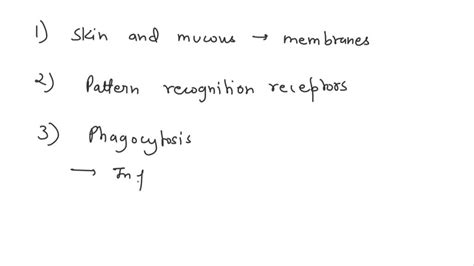 1) Skin and mucous → membranes
2) Pattern recognition receptors
3) Phagocytosis
→ Inf